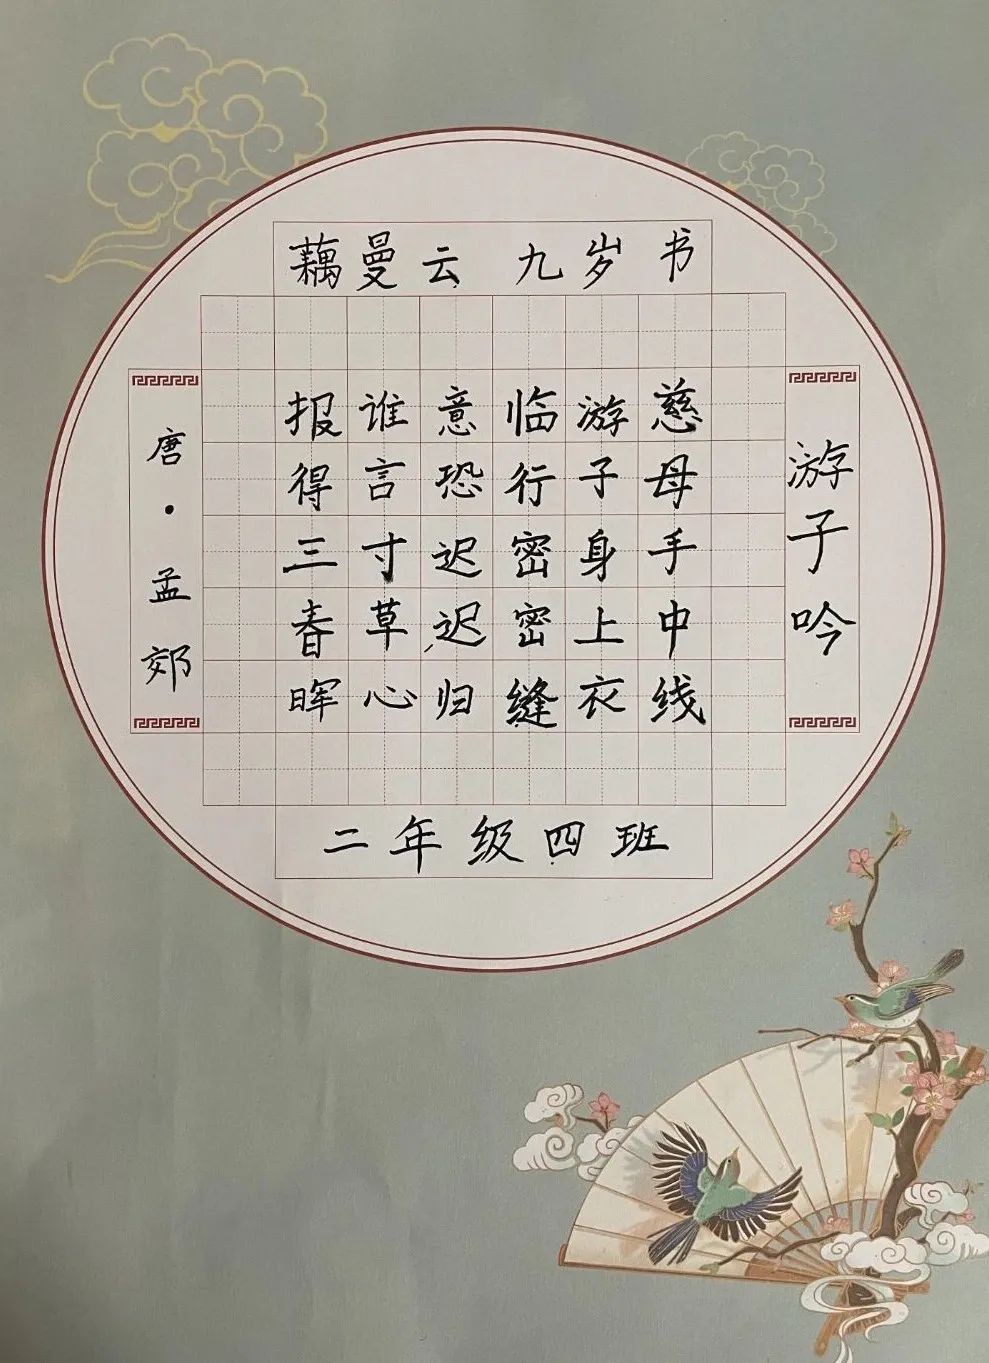 藕曼云 九岁 书
游子吟
慈母手中线
游子身上衣
临行密密缝
意恐迟迟归
谁言寸草心
报得三春晖
唐·孟郊
二年级四班